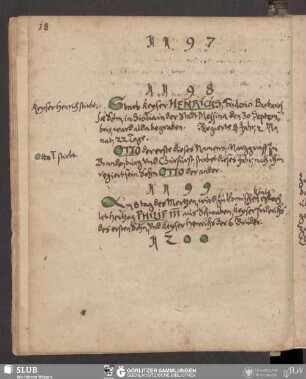 18
1197
1198
Keyser Henrich stirbt.
Starb Keyser HENRICUS, Friderici Barbaros-
sæ Sohn, in Sicilien in der Stadt Messina den 30 Septem-
bris, ward alda begraben. Regierte 8 Jahr, 2 Mo-
nat, 22 Tage.
Otto I stirbt.
OTTO der erste dieses Namens, Marggraf zu
Brandenburg und Churfürst starbet dieses Jahr, nach ihm
regiert sein Sohn OTTO der ander.
1199
König
Am Tag des Mertzen, wird zu Römischen
PHILIP III aus Schwaben, Keyser Friderichs
des ersten Sohn und Keyser Henrichs des 6 Bruder.
1200
SLUB
Wir führen Wissen.
GÖRLITZER SAMMLUNGEN
OBERLAUSITZISCHE BIBLIOTHEK